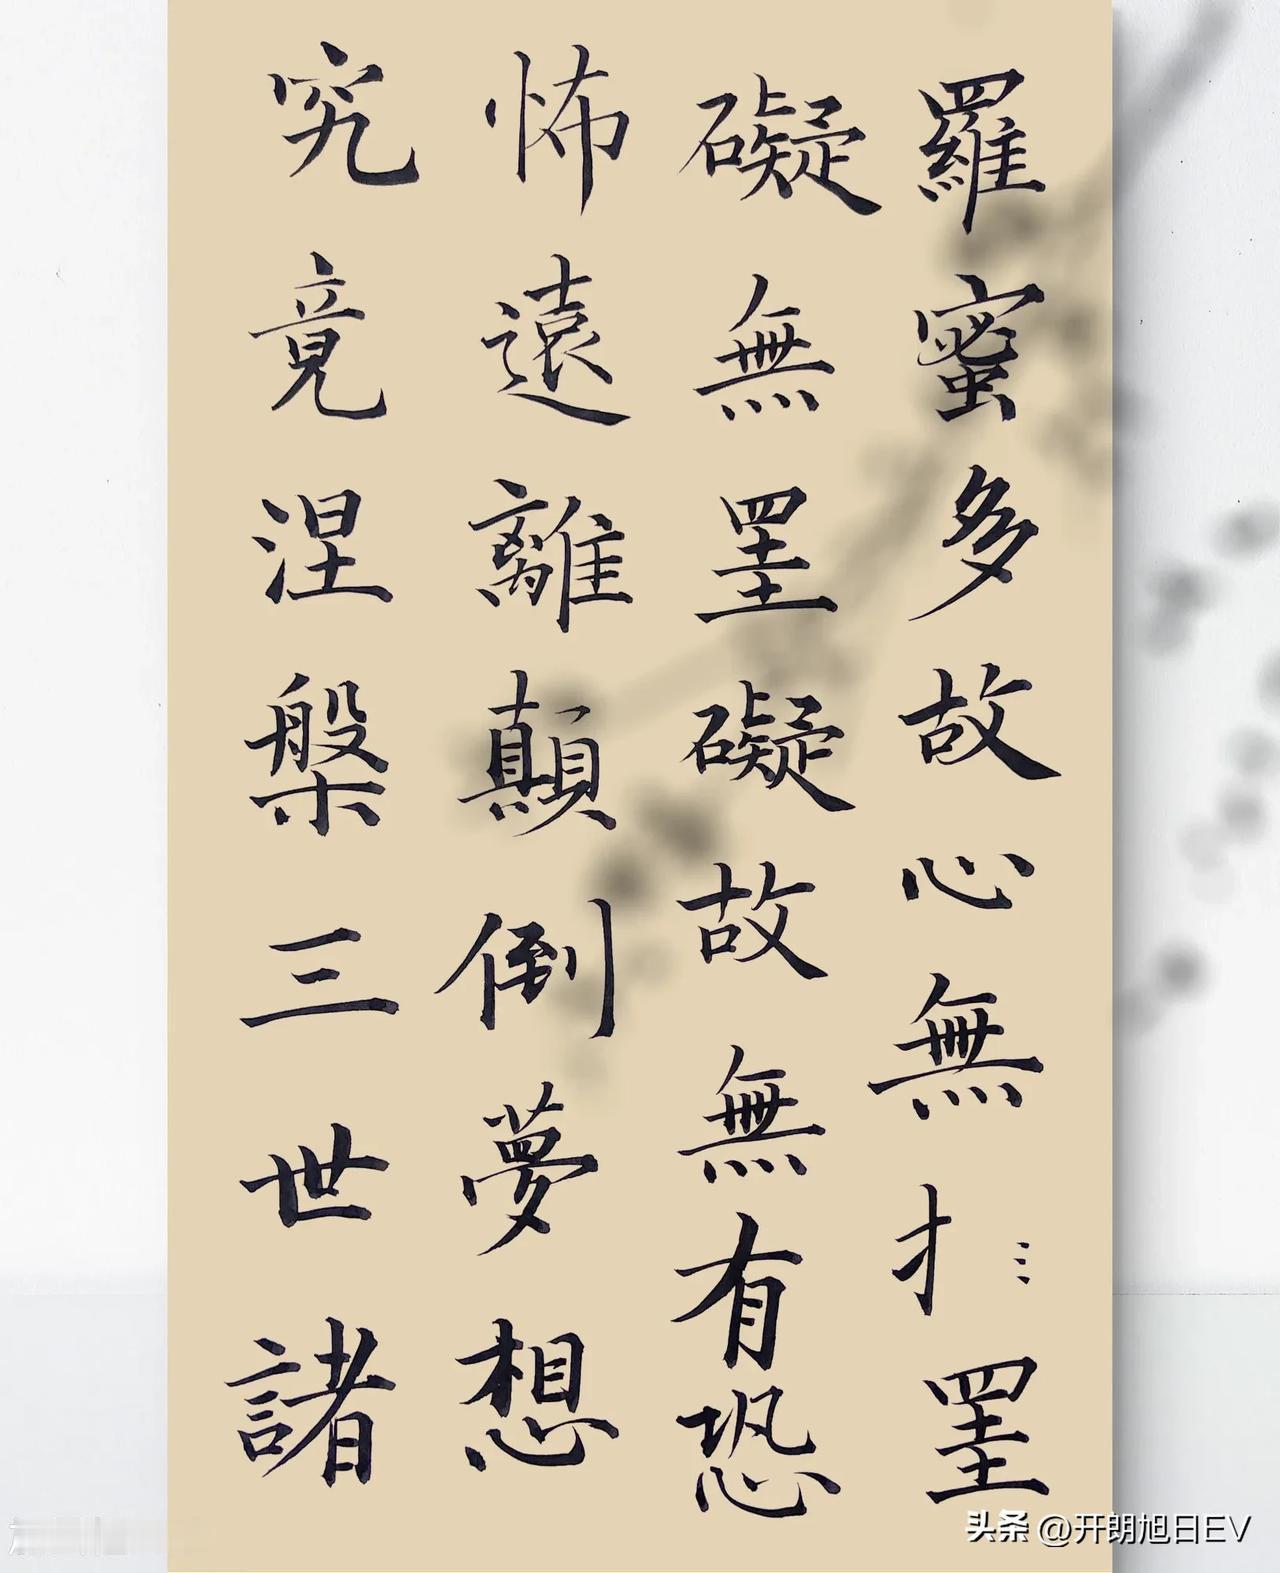 羅蜜多故心無扌罣
礙無罣礙故無有恐
怖遠離顛倒夢想
究竟涅槃三世諸
头条 @开朗旭日EV